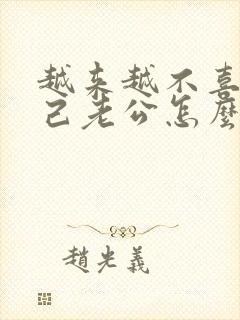 越来越不喜
己老公怎麼
趙光義